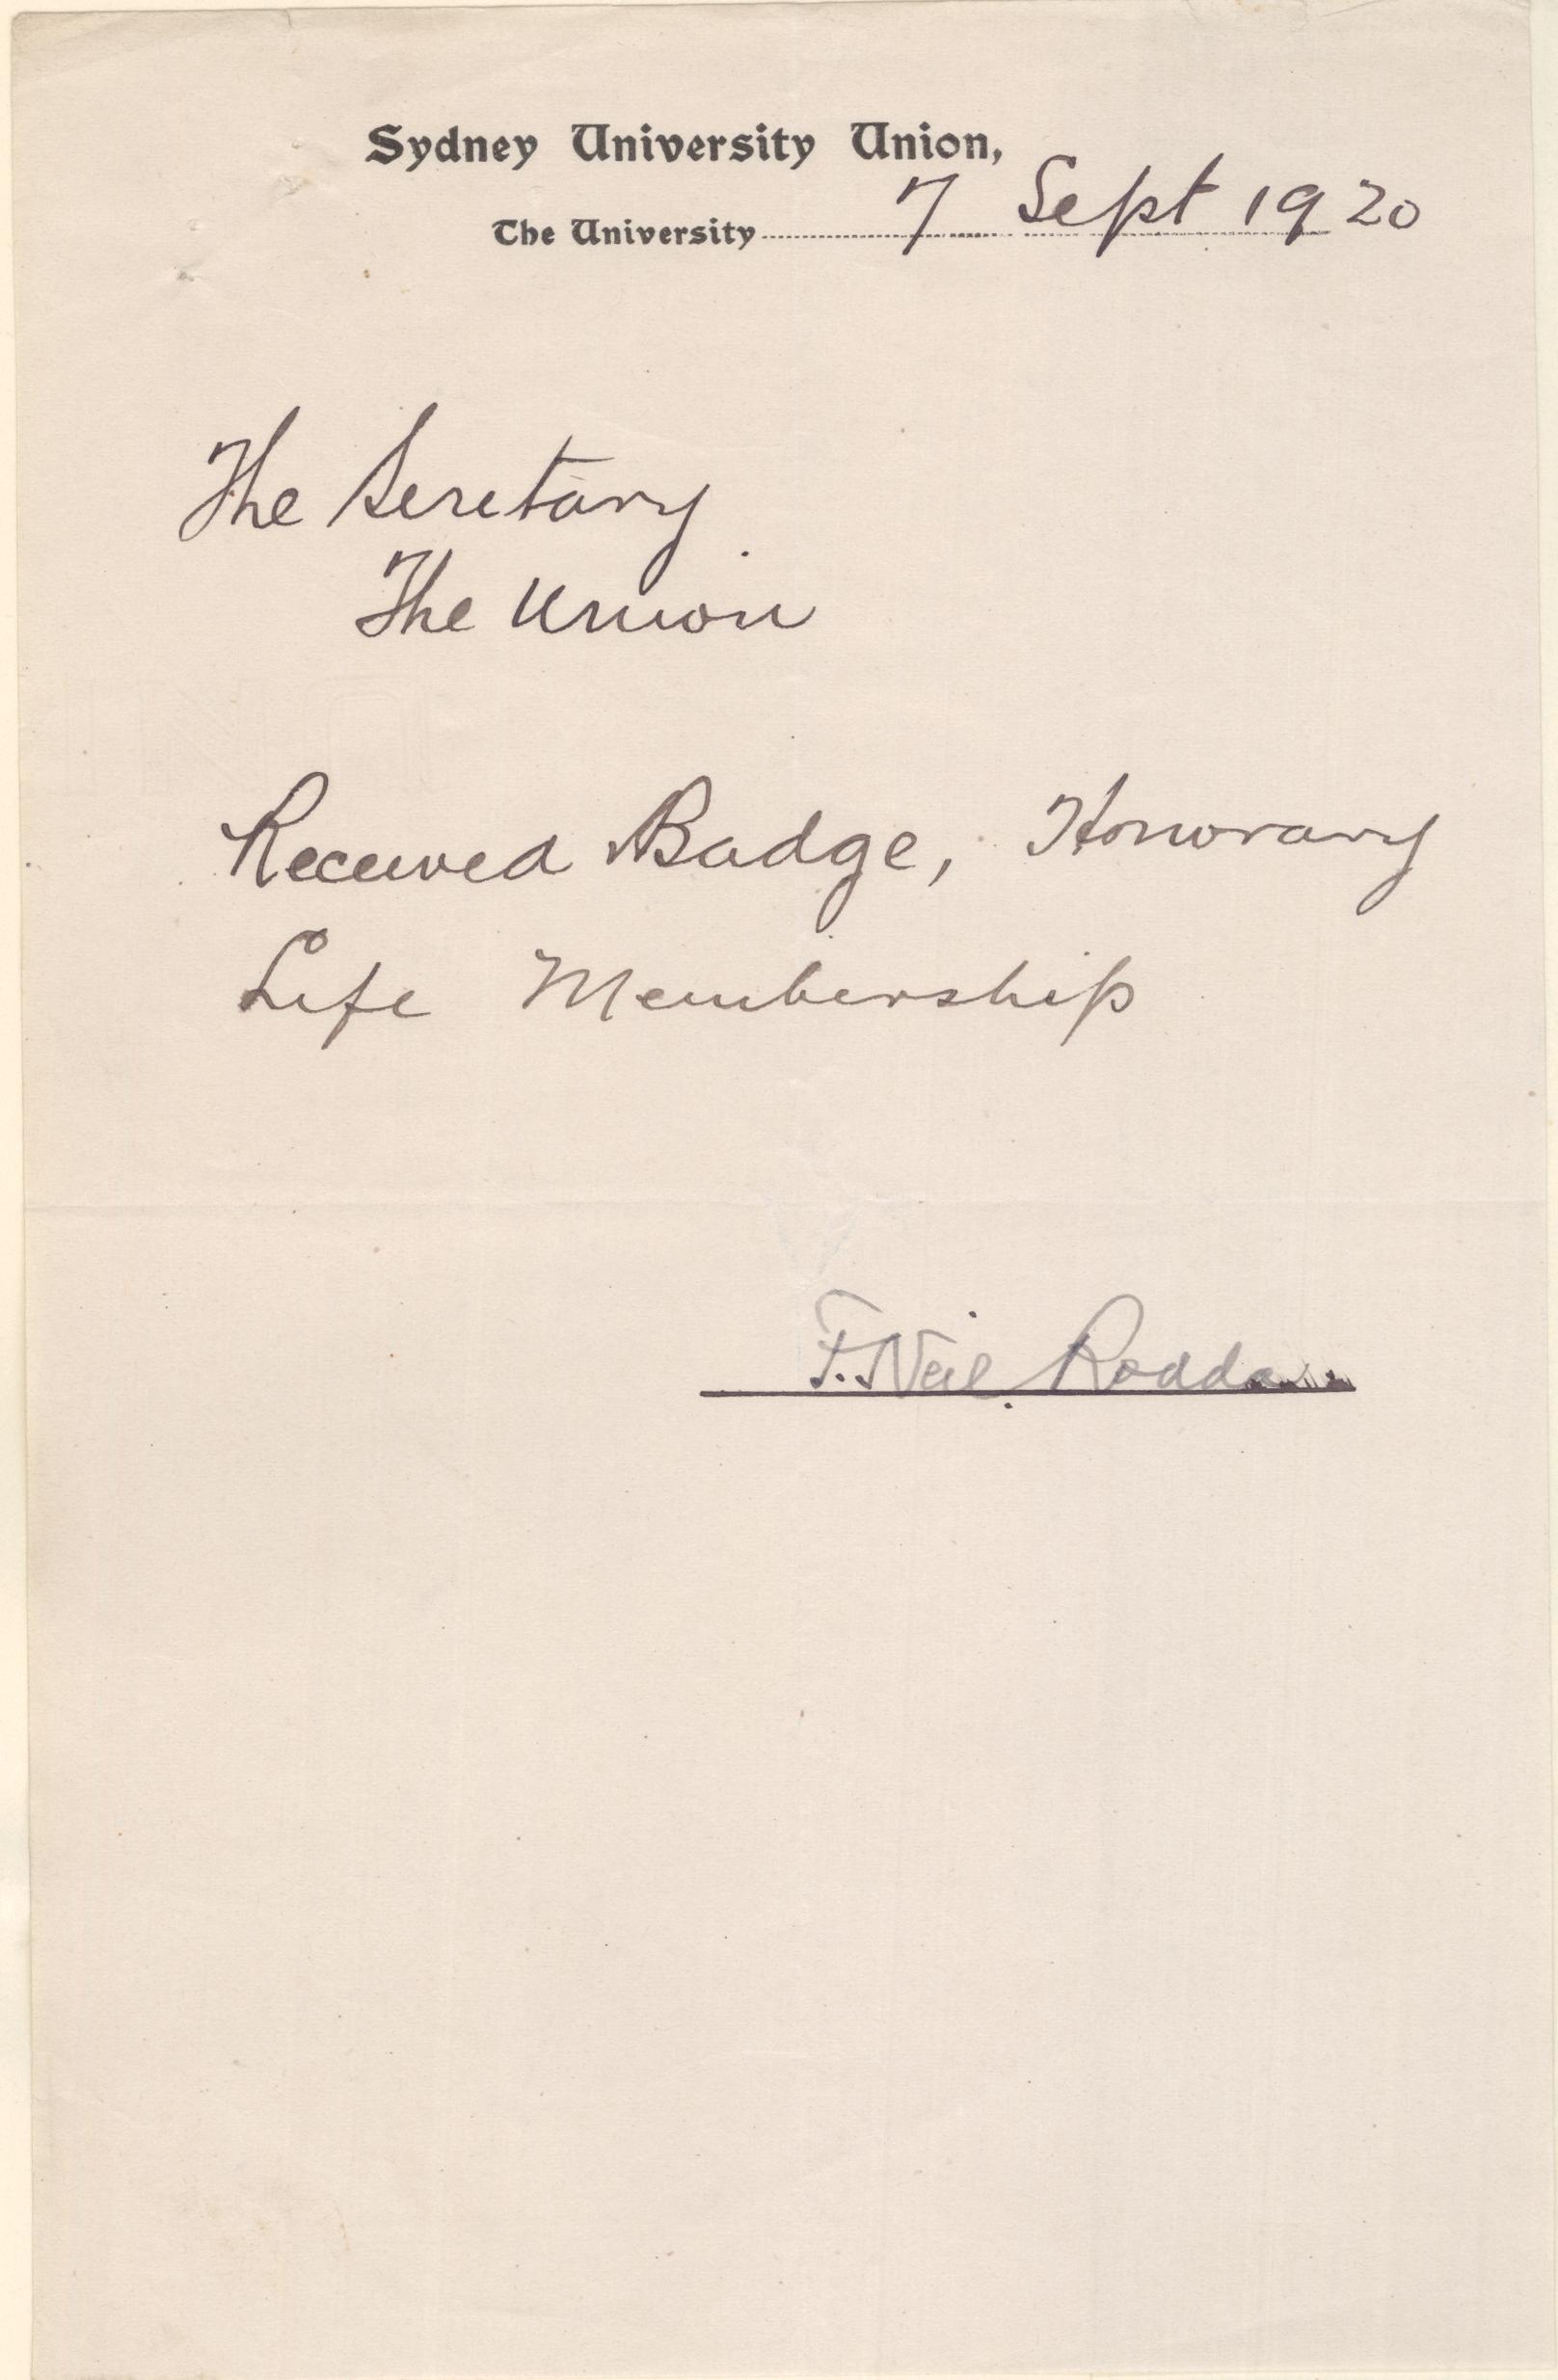 Sydney University Union,
The University 7 Sept 1920
The Secretary
The Union
Received Badge, Honorary
Life Membership
F. Neil Rodda